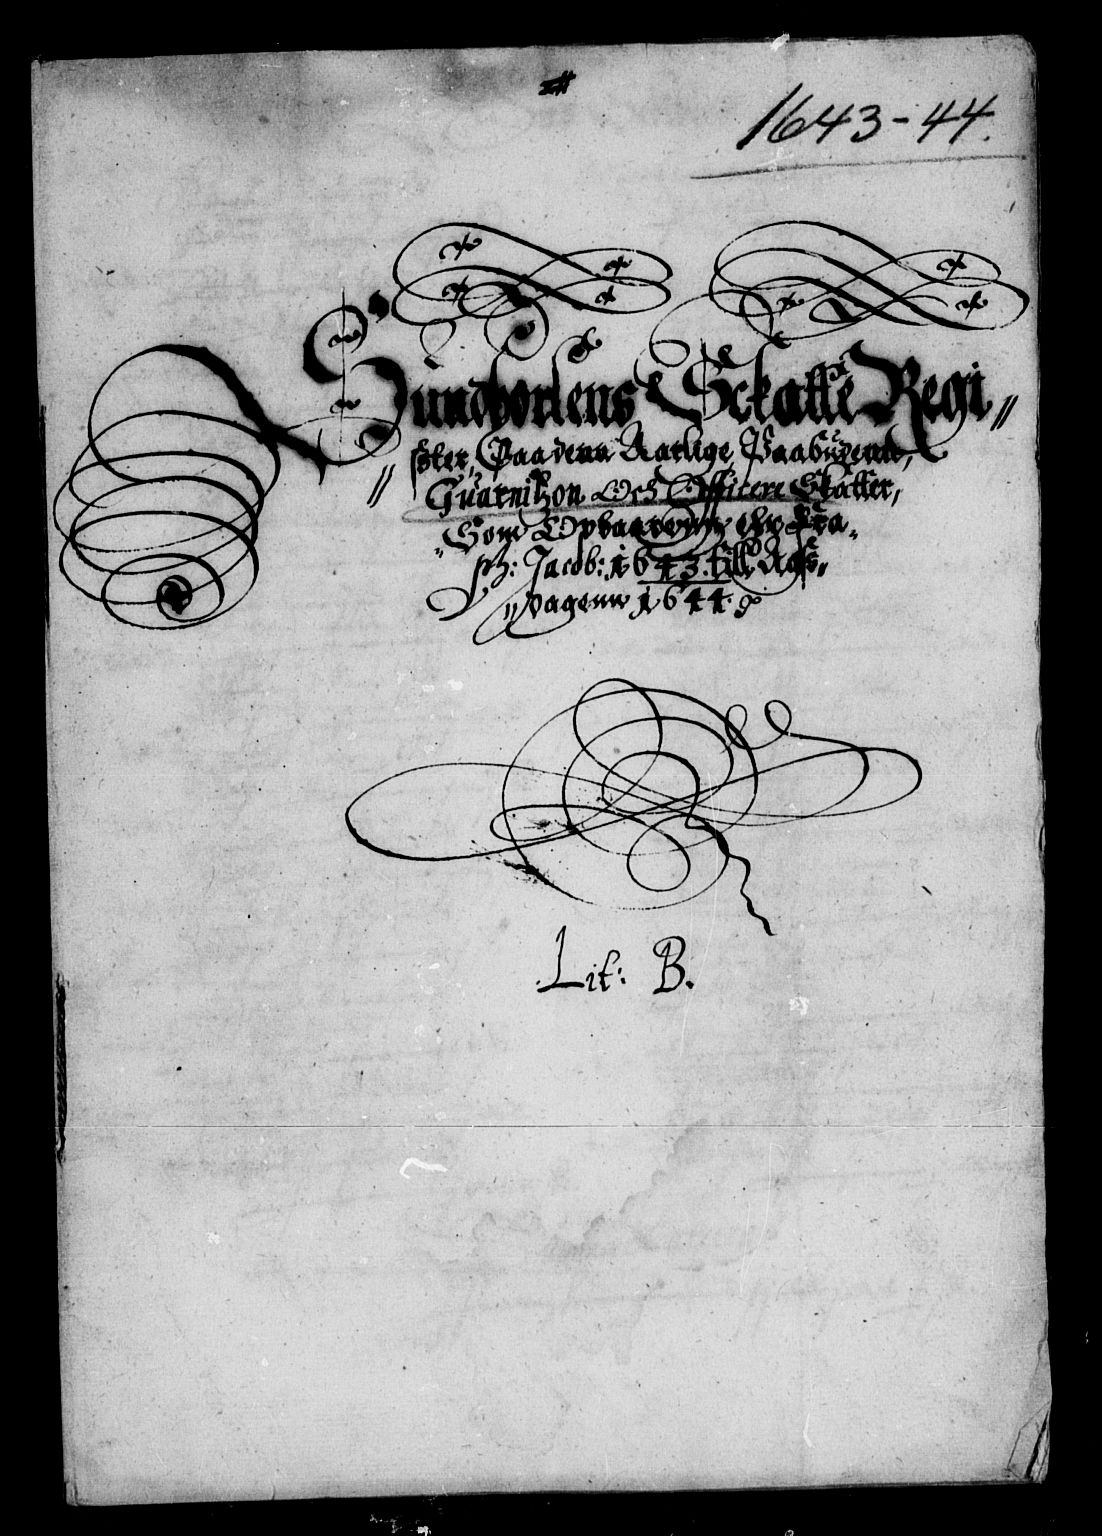 1643-44.
Sundhorlens Sckatte Regi〃
〃ster, Paa denn Aarlige Paabudenn,
Guarnitzon Och Officere Skatter,
Som Opbaaren er fra
ph: Jacob: 1643. till Ad
〃dagenn 1644.
Lit: B.